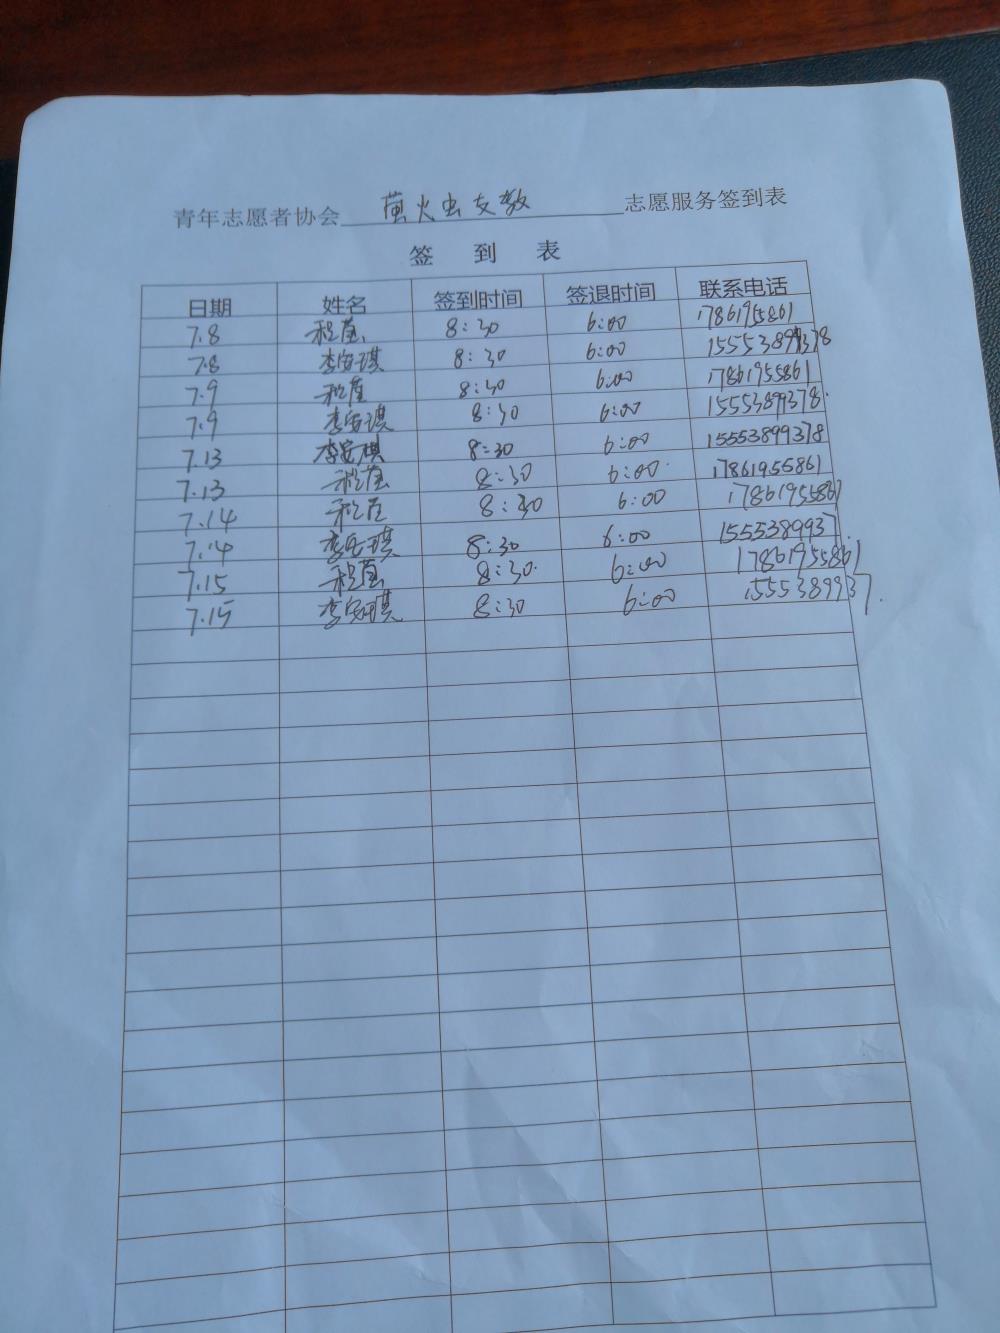 青年志愿者协会 萤火虫支教 志愿服务签到表
签 到 表
日期 姓名 签到时间 签退时间 联系电话
7.8 程 8:30 6:00 17861955861
7.8 李安琪 8:30 6:00 15553899378
7.9 程 8:30 6:00 17861955861
7.9 李安琪 8:30 6:00 15553899378.
7.13 李安琪 8:30 6:00 15553899378
7.13 程 8:30 6:00 17861955861
7.14 程 8:30 6:00 17861955861
7.14 李安琪 8:30 6:00 1555389937.
7.15 程 8:30. 6:00 17861955861
7.15 李安琪 8:30 6:00 1555389937.